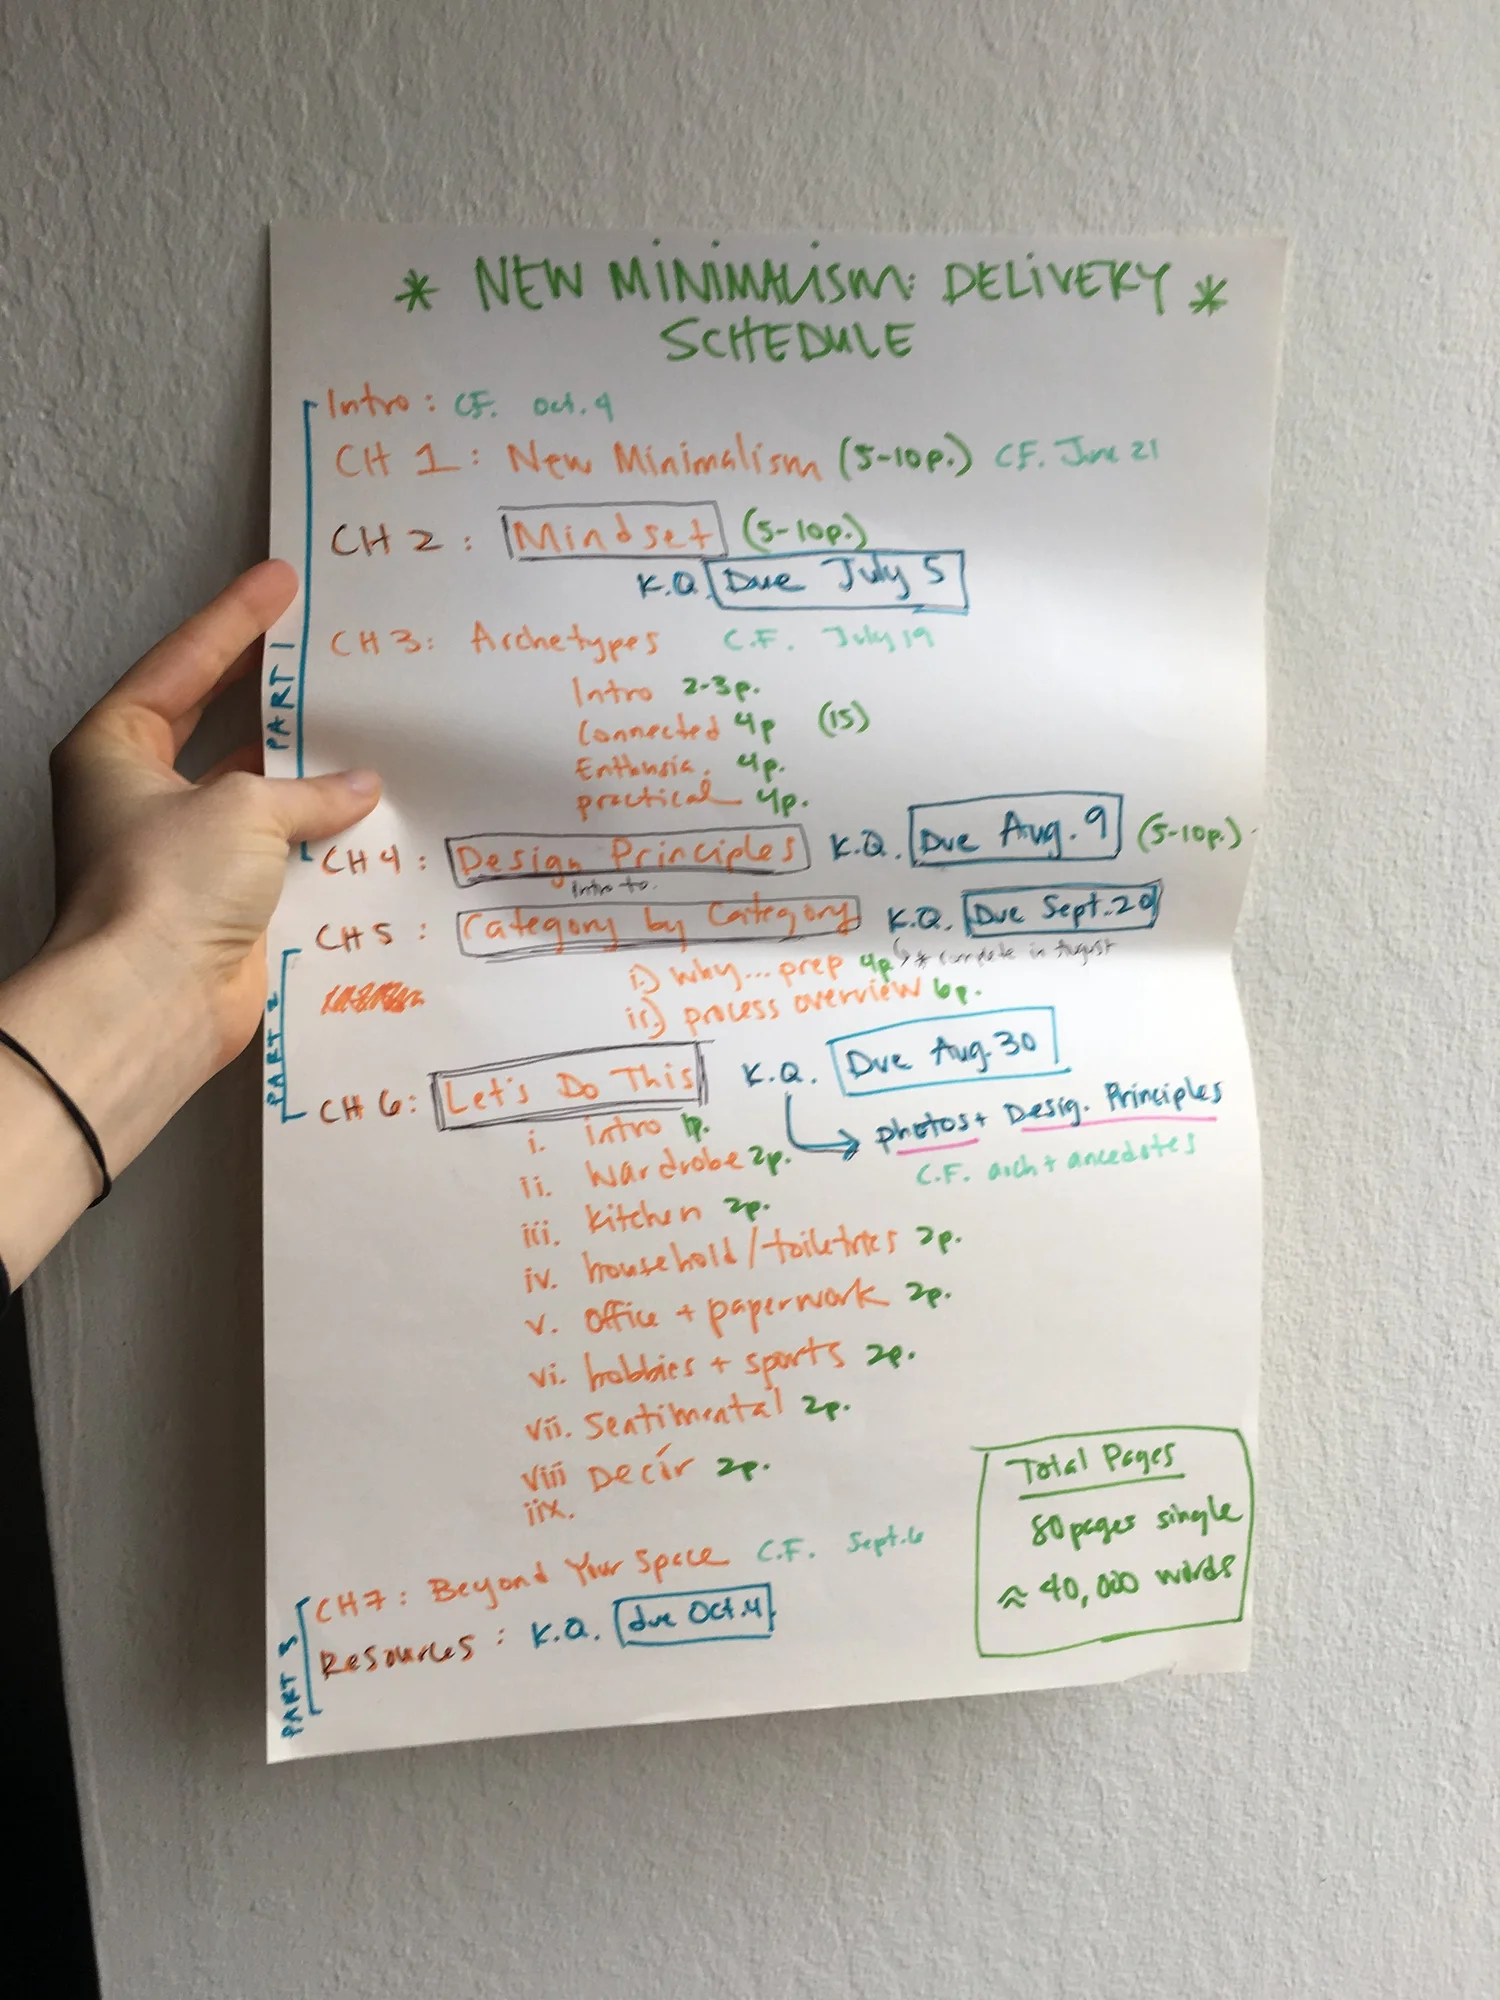 * NEW MINIMALISM: DELIVERY *
SCHEDULE
PART 1
Intro: CF. Oct. 4
CH 1: New Minimalism (5-10p.) CF. June 21
CH 2: Mindset (5-10p.)
K.Q. Due July 5
CH 3: Archetypes C.F. July 19
Intro 2-3p.
Connected 4p (15)
Enthusia. 4p.
practical 4p.
CH 4: Design Principles K.Q. Due Aug. 9 (5-10p.)
Intro to
PART 2
CH 5: Category by Category K.Q. Due Sept. 20
* complete in August
i.) why... prep 4p
ii.) process overview 6p.
CH 6: Let's Do This K.Q. Due Aug. 30
photos + Desig. Principles
C.F. arch + ancedotes
i. intro 1p.
ii. wardrobe 2p.
iii. kitchen 2p.
iv. household/toiletries 2p.
v. office + paperwork 2p.
vi. hobbies + sports 2p.
vii. sentimental 2p.
viii Decór 2p.
iix.
Total Pages
80 pages single
≈ 40,000 words
PART 3
CH 7: Beyond Your Space C.F. Sept. 6
Resources: K.Q. due Oct. 4